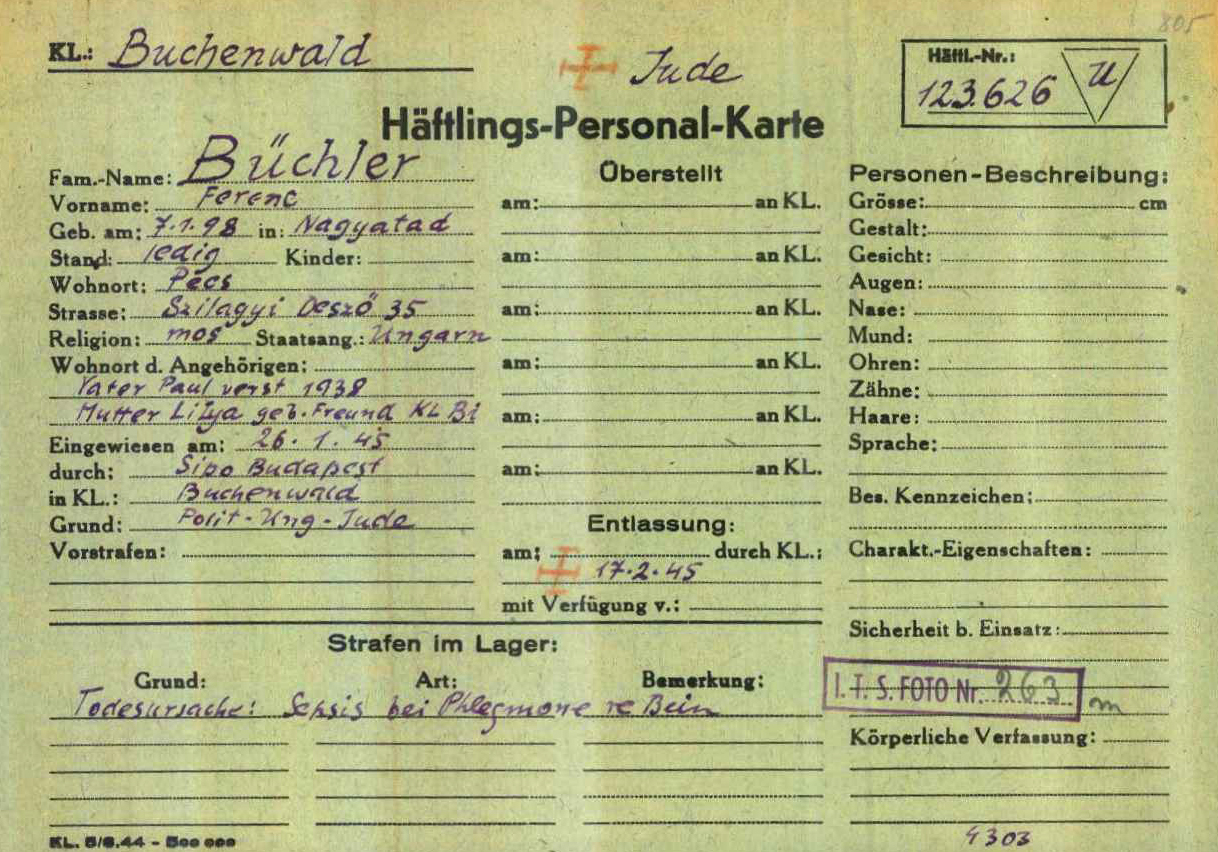 805
KL.: Buchenwald
Jude
Häftl.-Nr.:
123.626 U
Häftlings-Personal-Karte
Fam.-Name: Büchler
Vorname: Ferenc
Geb. am: 7.1.98 in: Nagyatad
Stand: ledig Kinder:
Wohnort: Pécs
Strasse: Szilagyi Deszö 35
Religion: mos Staatsang.: Ungarn
Wohnort d. Angehörigen:
Vater Paul verst 1938
Mutter Lilya geb. Freund KL Bi
Eingewiesen am: 26.1.45
durch: Sipo Budapest
in KL.: Buchenwald
Grund: Polit-Ung-Jude
Vorstrafen:
Überstellt
am: an KL.
am: an KL.
am: an KL.
am: an KL.
am: an KL.
am: an KL.
Entlassung:
am: durch KL.:
17.2.45
mit Verfügung v.:
Personen-Beschreibung:
Grösse: cm
Gestalt:
Gesicht:
Augen:
Nase:
Mund:
Ohren:
Zähne:
Haare:
Sprache:
Bes. Kennzeichen:
Charakt.-Eigenschaften:
Sicherheit b. Einsatz:
I.T.S. FOTO Nr. 263 m
Körperliche Verfassung:
Strafen im Lager:
Grund: Art: Bemerkung:
Todesursache: Sepsis bei Phlegmone re Bein
KL. 5/6.44 - 500 000
4303